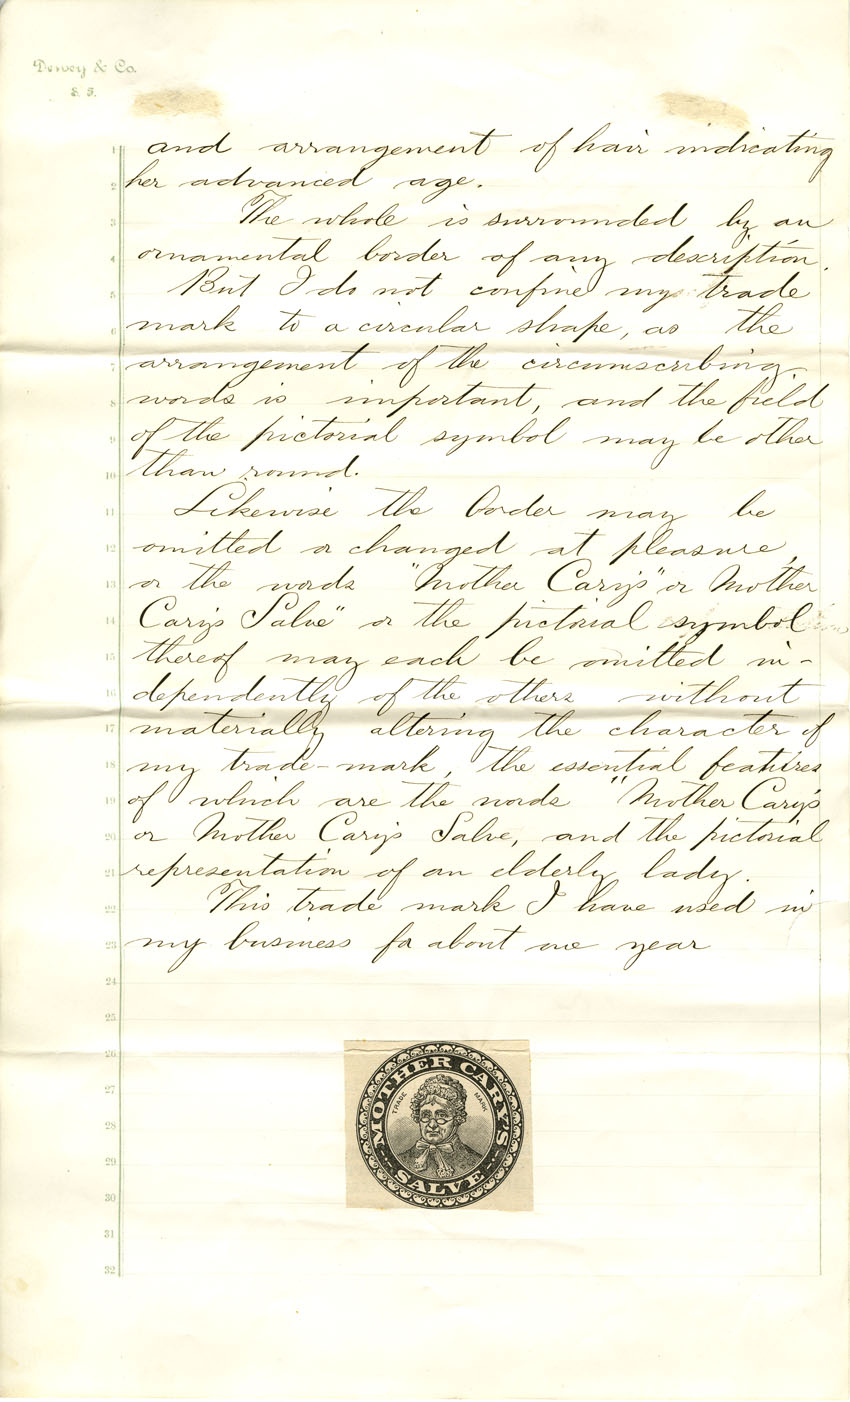 Dewey & Co.
S. F.
1 and arrangement of hair indicating
2 her advanced age.
3 The whole is surrounded by an
4 ornamental border of any description.
5 But I do not confine my trade
6 mark to a circular shape, as the
7 arrangement of the circumscribing
8 words is important, and the field
9 of the pictorial symbol may be other
10 than round.
11 Likewise the border may be
12 omitted or changed at pleasure,
13 or the words "Mother Cary's" or Mother
14 Cary's Salve" or the pictorial symbol
15 thereof may each be omitted in-
16 dependently of the others without
17 materially altering the character of
18 my trade-mark, the essential features
19 of which are the words "Mother Cary's
20 or Mother Cary's Salve, and the pictorial
21 representation of an elderly lady.
22 This trade mark I have used in
23 my business for about one year
24
25
26
27
28
29
30
31
32
MOTHER CARY'S
TRADE MARK
SALVE